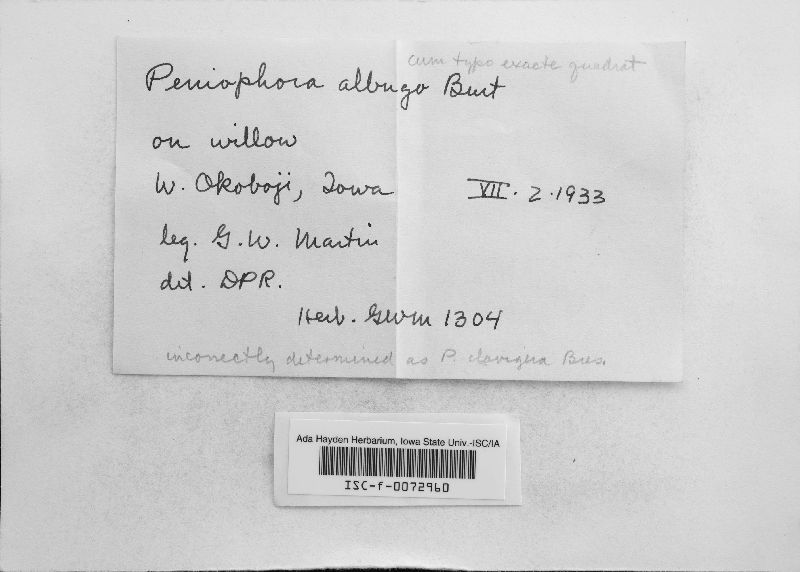 cum typo exacte quadrat
Peniophora albugo Burt
on willow
W. Okoboji, Iowa VII. 2. 1933
leg. G. W. Martin
det. DPR.
Herb. GWM 1304
incorrectly determined as P. clavigera Bres.
Ada Hayden Herbarium, Iowa State Univ.-ISC/IA
ISC-f-0072960